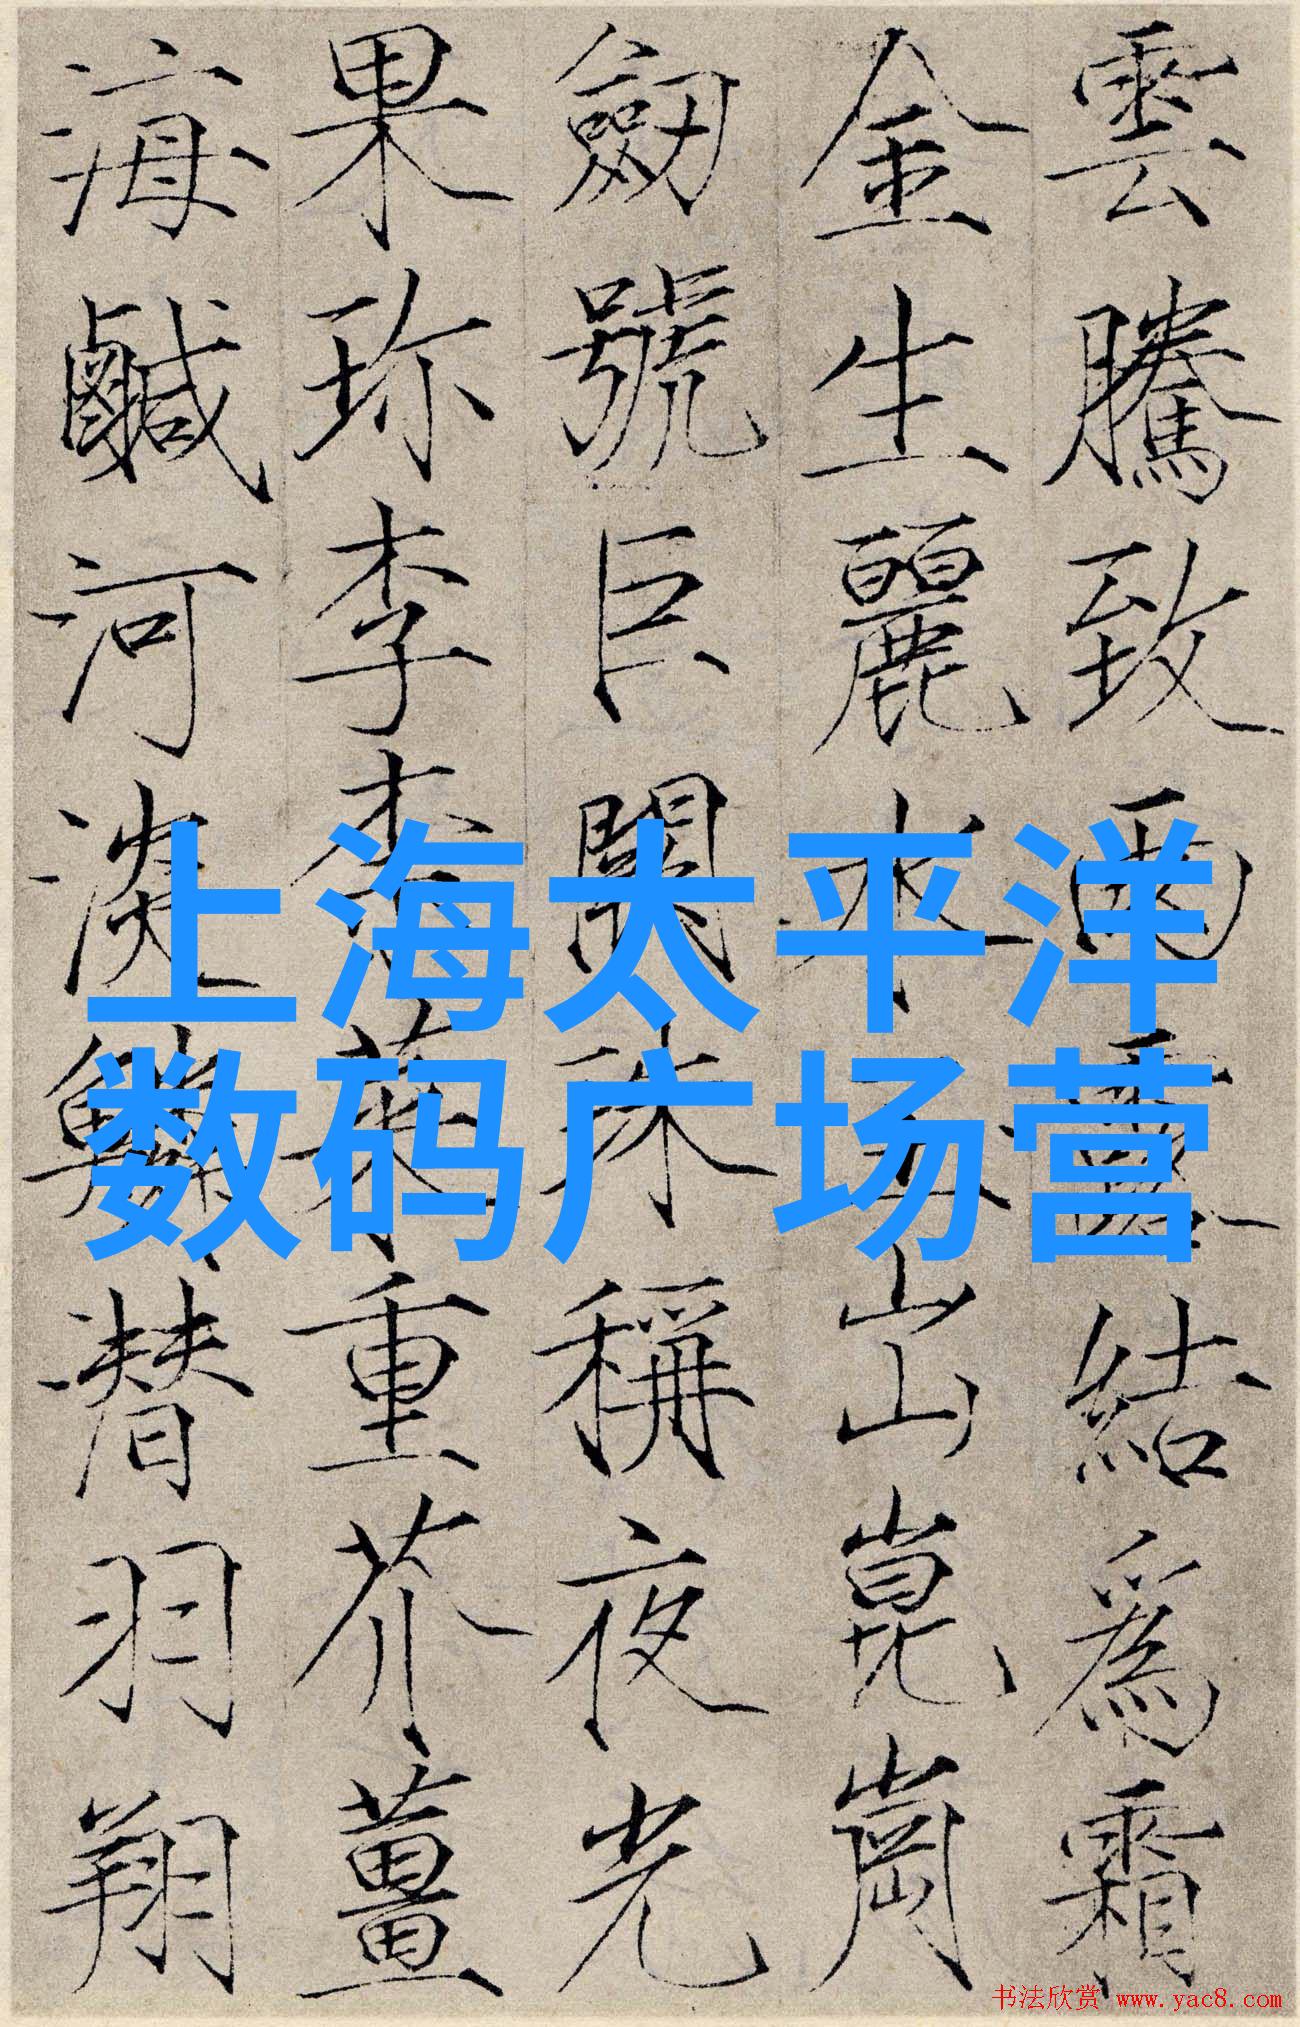 雲騰致雨露結爲霜
金生麗水玉出崑崗
劒號巨闕珠稱夜光
果珎李柰菜重芥薑
海鹹河淡鱗潜羽翔
上海太平洋
数码广场营
书法欣赏 www.yac8.com